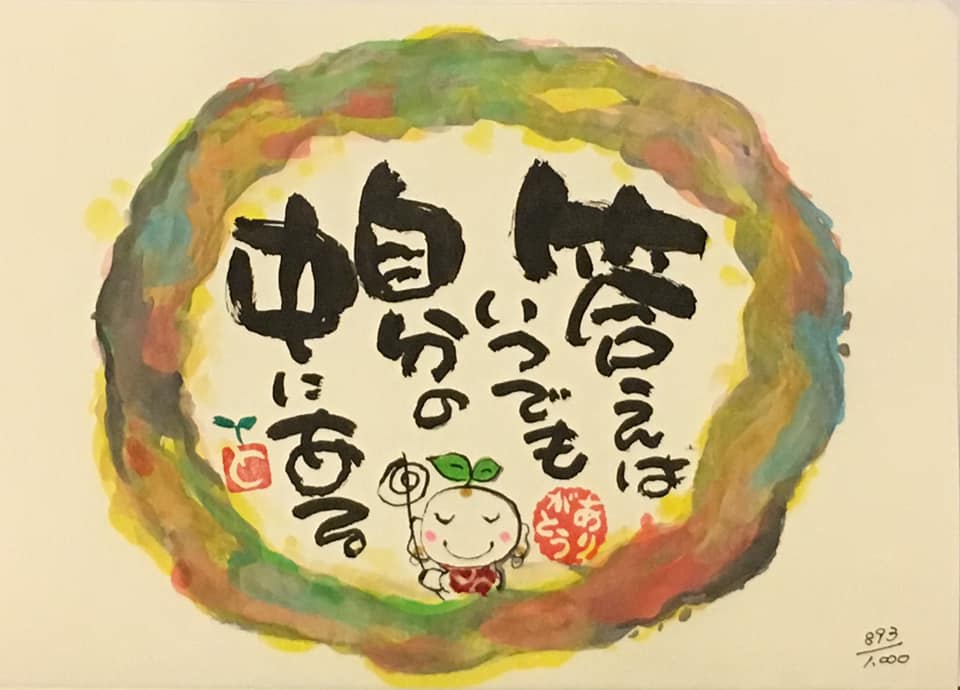 答えは
いつでも
自分の
中にある。
ありがとう
と
893/1,000